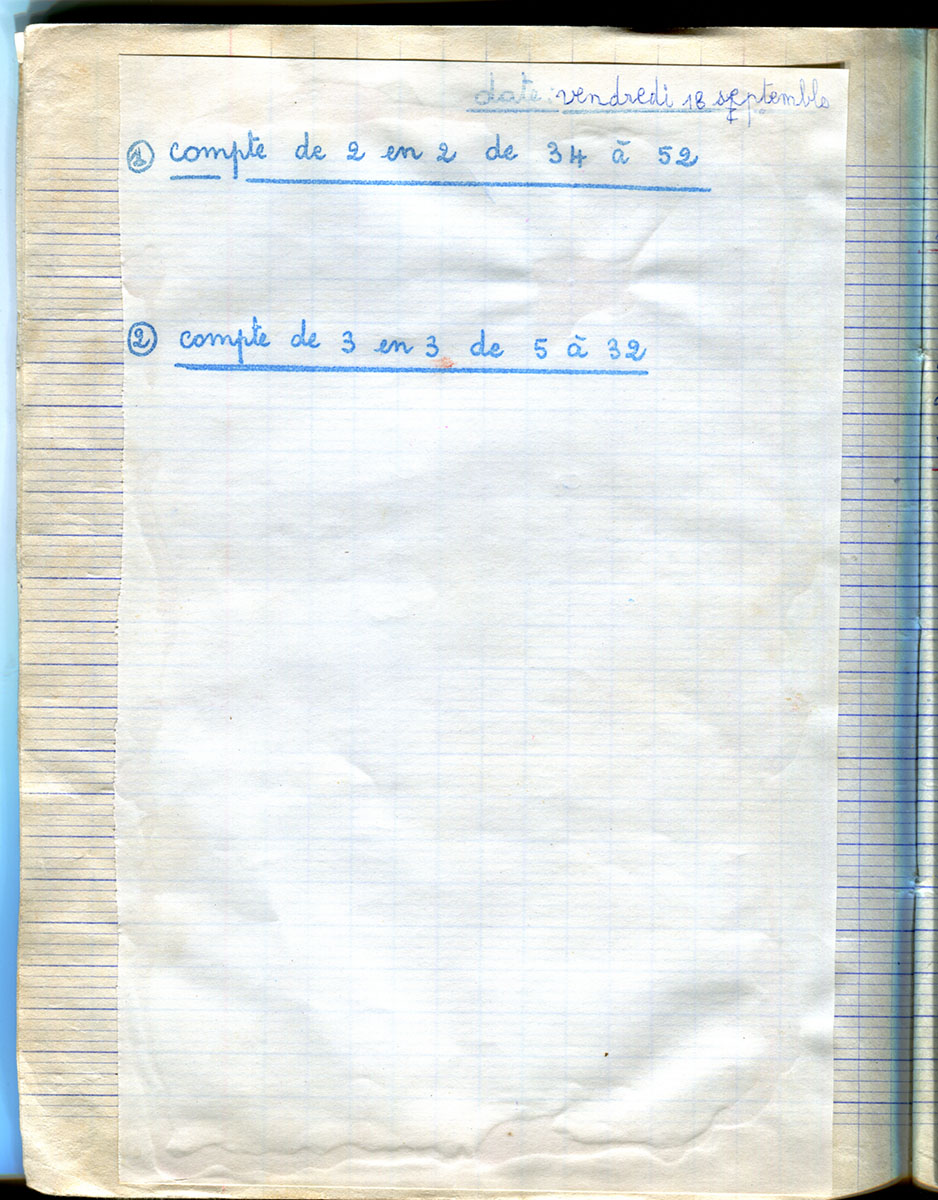 date: vendredi 18 septemble
① compte de 2 en 2 de 34 à 52
② compte de 3 en 3 de 5 à 32